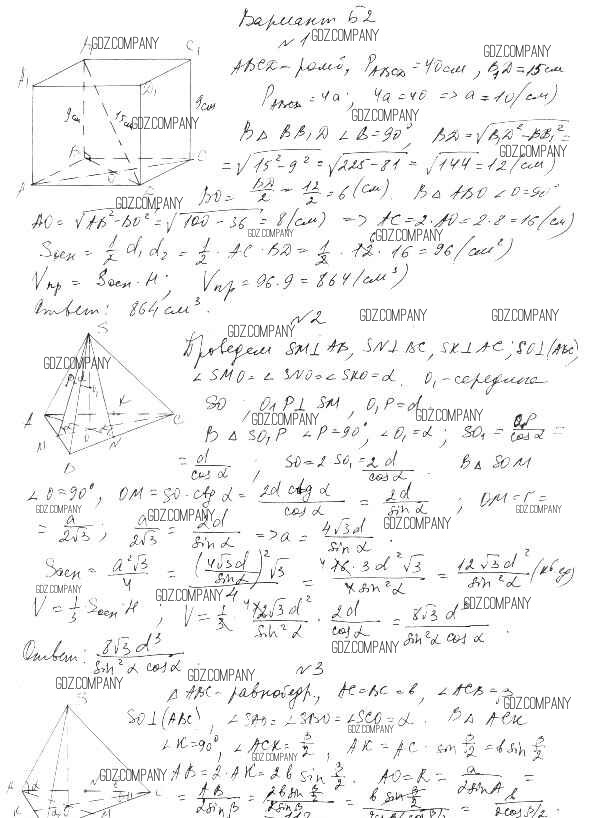 Вариант Б2
№1
ABCD - ромб, P_ABCD = 40 см, B₁D = 15 см
P_ABCD = 4a; 4a = 40 => a = 10 (см)
В △ BB₁D ∠B = 90°, BD = √(B₁D² - BB₁²) =
= √(15² - 9²) = √(225 - 81) = √144 = 12 (см)
BO = BD/2 = 12/2 = 6 (см). В △ ABO ∠O = 90°
AO = √(AB² - BO²) = √(100 - 36) = 8 (см) => AC = 2·AO = 2·8 = 16 (см)
Sосн = 1/2 d₁d₂ = 1/2 · AC · BD = 1/2 · 12 · 16 = 96 (см²)
Vпр = Sосн · H; Vпр = 96·9 = 864 (см³)
Ответ: 864 см³.
№2
Проведем SM⊥AB, SN⊥BC, SK⊥AC; SO⊥(ABC),
∠SMO = ∠SNO = ∠SKO = α. O₁ - середина
SO; O₁P⊥SM, O₁P = d
В △ SO₁P ∠P = 90°, ∠O₁ = α; SO₁ = O₁P/cos α =
= d/cos α; SO = 2SO₁ = 2d/cos α. В △ SOM
∠O = 90°, OM = SO · ctg α = 2d ctg α/cos α = 2d/sin α; OM = r =
= a/2√3; a/2√3 = 2d/sin α => a = 4√3d/sin α.
Sосн = a²√3/4 = (4√3d/sin α)² √3/4 = 16·3d²√3/4 sin² α = 12√3d²/sin² α (кв ед)
V = 1/3 Sосн · H; V = 1/3 · 12√3d²/sin² α · 2d/cos α = 8√3d³/sin² α cos α.
Ответ: 8√3d³/sin² α cos α.
№3
△ ABC - равнобедр, AC = BC = b, ∠ACB = β
SO⊥(ABC), ∠SAO = ∠SBO = ∠SCO = α. В △ ACK
∠K = 90°, ∠ACK = β/2, AK = AC · sin β/2 = b sin β/2
AB = 2·AK = 2b sin β/2. AO = R = a/2sin A =
= AB/2sin β = 2b sin β/2